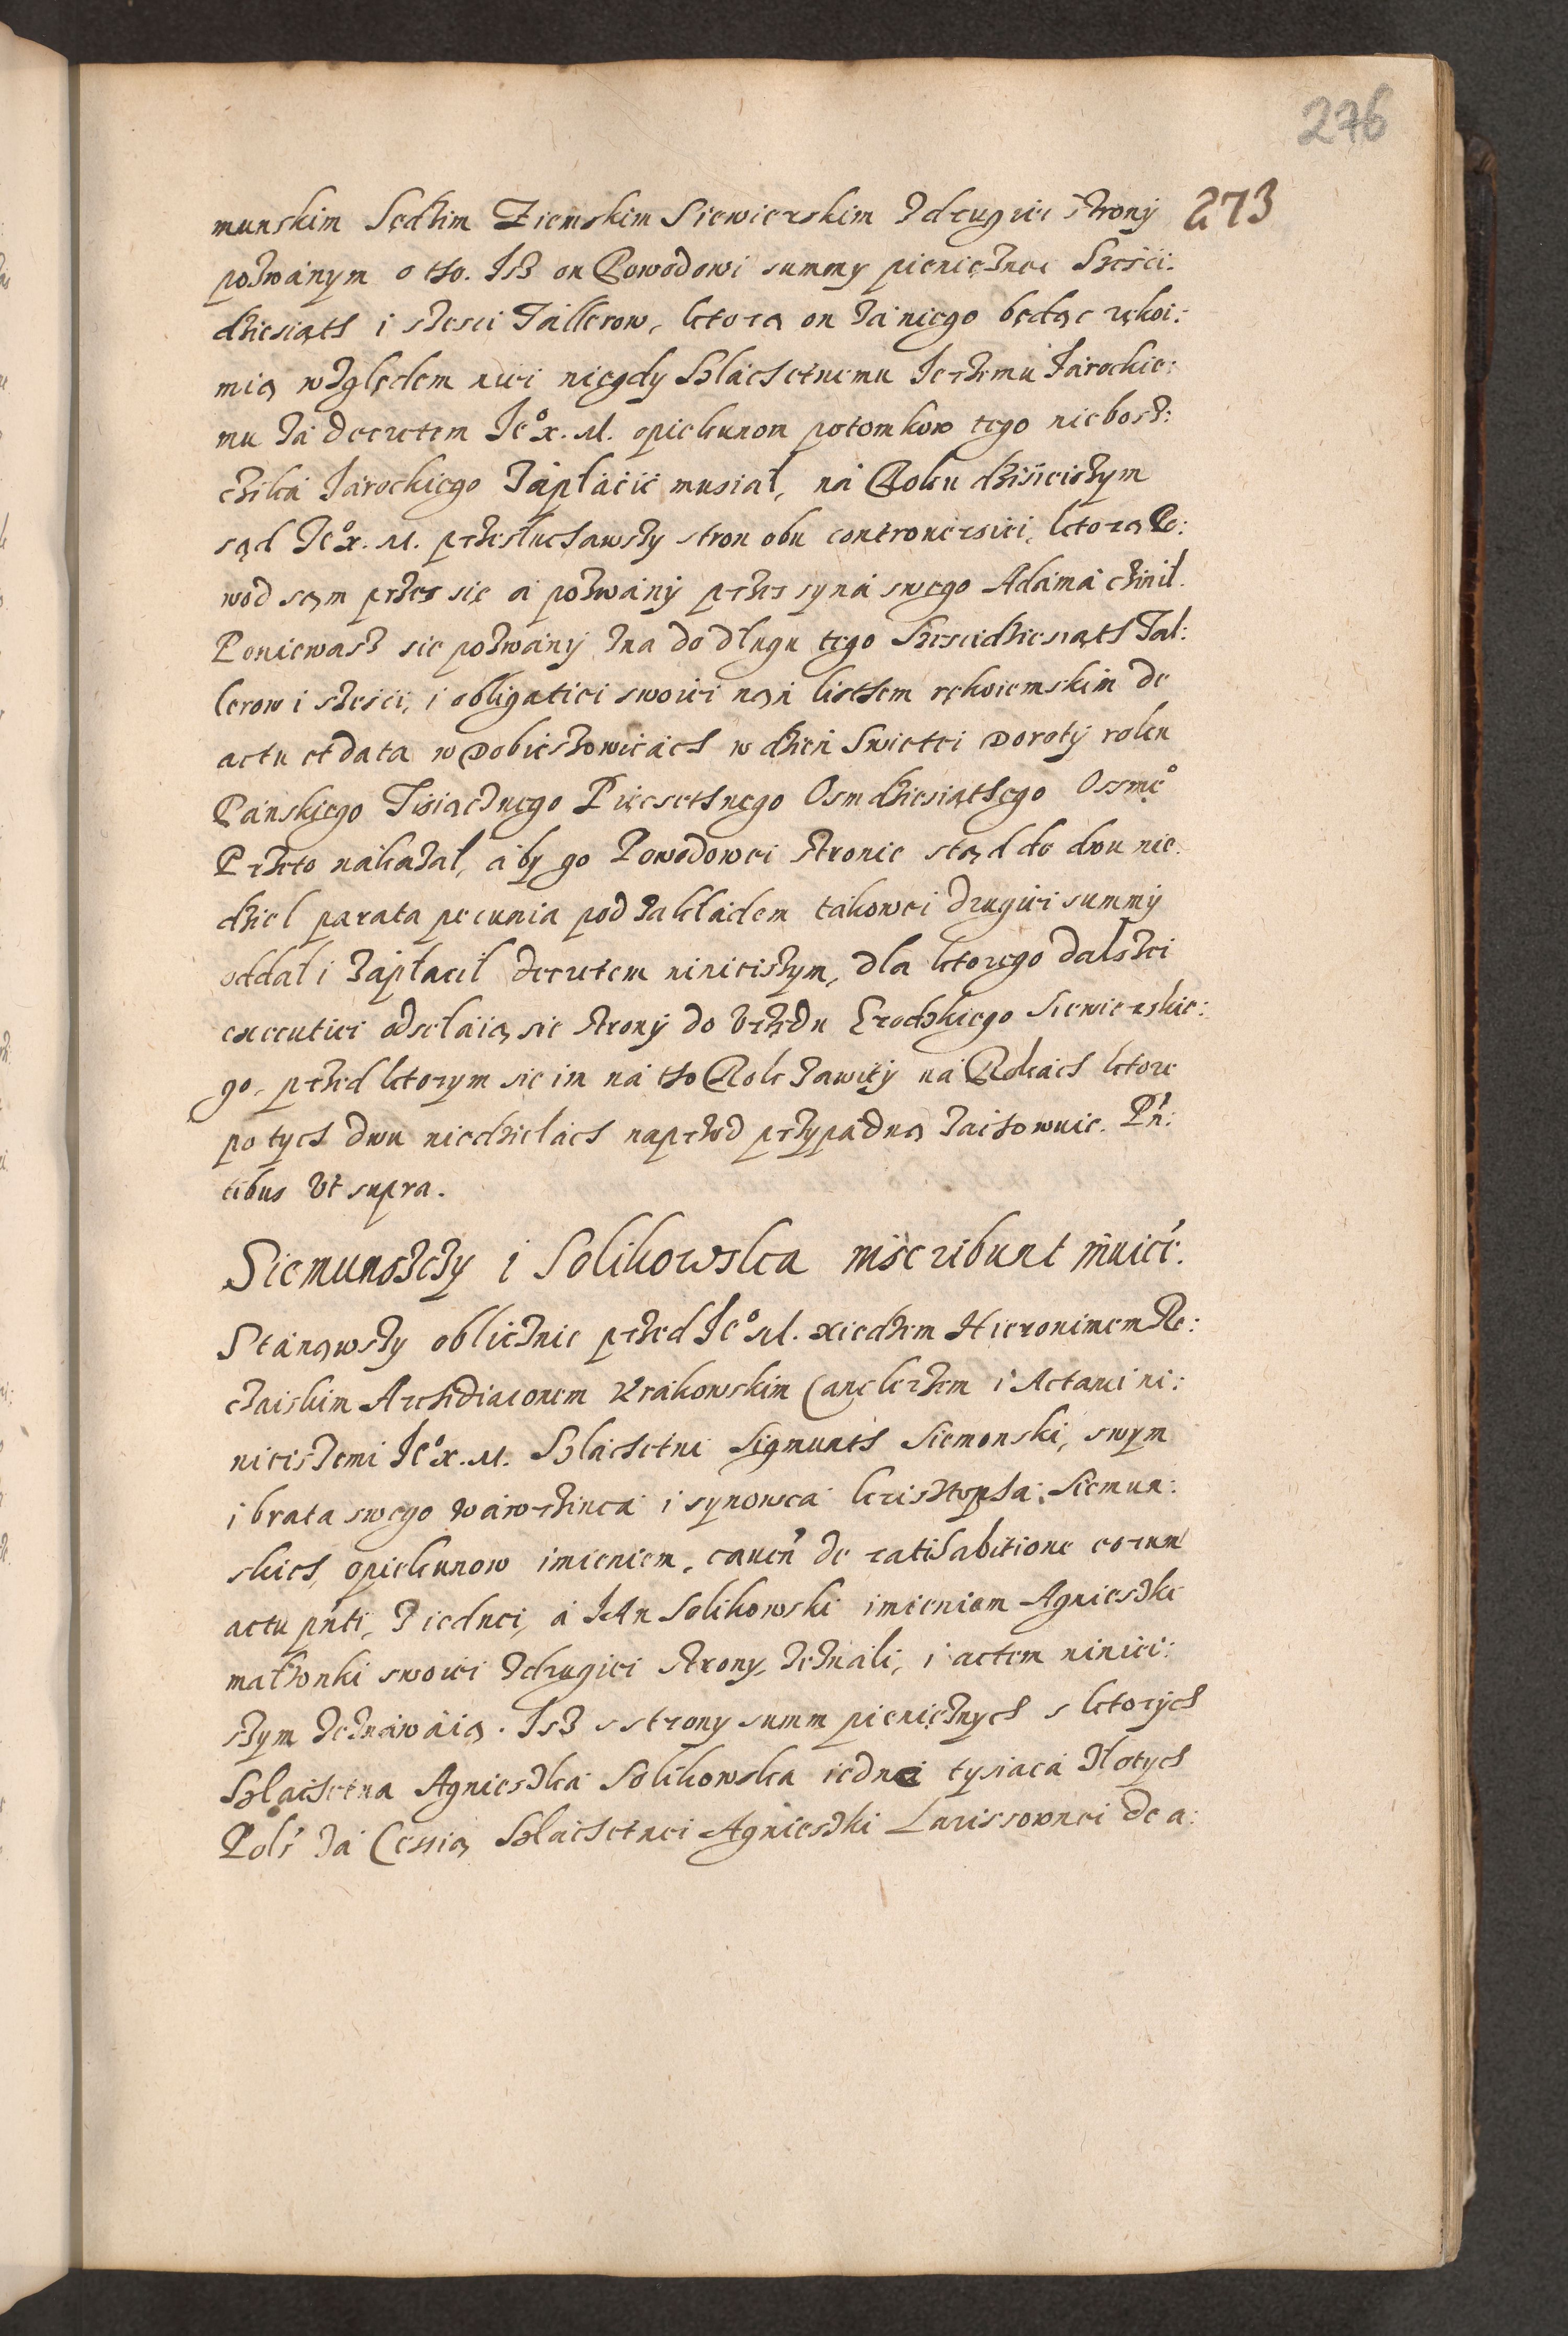 276
273
munskim Sędzim Ziemskim Siewierskim z drugiei strony
pozwánym o tho. Isz on Powodowi summy pieniężnei Sześci:
dziesiąth i sześci Tallerow, ktorą on zá niego będąc rękoi:
mią względem niei niegdy Szlachetnemu Jerzemu Járockie:
mu zá decretem Je° x. M. opiekunom potomkow tego niebosz:
czika Járockiego zápłácić musiał, ná Roku dzisieiszym
sąd Je° x. M. przesłuchawszy stron obu controuersiei, ktorą Po:
wod sąm przez się á pozwány przez syná swego Adámá czinił.
Poniewasz sie pozwány zna do długu tego Sześcidziesiąth Tal:
lerow i sześci, i obligatiei swoiei nań listhem rękoiemskim de
actu et data w Dobieszowicách w dzień Swiętei Doroty roku
Pánskiego Tisiącznego Pięcsethnego Osmdziesiąthego Osmę°
Przeto nákazał, áby go Powodowei stronie stąd do dwu nie
dziel parata pecunia pod zakładem takowei drugiei summy
oddał i zápłacił decretem ninieiszym, dla ktorego dalszei
executiei odsełáią sie strony do Vrzędu Grodzkiego Siewierskie:
go, przed ktorym sie im ná tho Rok záwity ná Rokách ktore
po tych dwu niedzielách naprzod przypádną záchowuie. Pn:
tibus vt supra.
Siemunszczy i Solikowska inscribunt inuicē.
Stánąwszy obliicznie przed Je° M. xiedzem Hieronimem Re:
czaiskim Archidiaconem Krákowskim Canclerzem i Actami ni:
nieiszemi Je° x. M. Szláchetni Sigmunth Siemonski, swym
i brata swego Wáwrzincá i synowcá Krisztophá Siemun:
skich, opiekunow imieniem, cauen de ratihabitione eorum
actu pnti, z iednei, á Ján Solikowski imieniem Agnieszki
małżonki swoiei z drugiei strony, zeználi, i actem niniei:
szym zeznáwáią. Isz s strony summ pieniężnych s ktorych
Szláchetna Agnieszká Solikowska iednei tysiacá złotych
Pols zá Cessią Szláchetnei Agnieszki Larissownei de a: